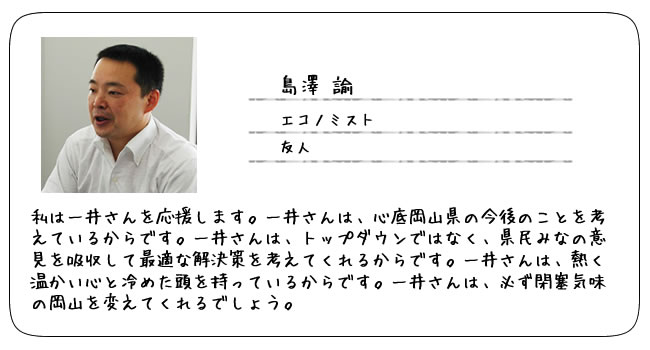 島澤 諭
エコノミスト
友人
私は一井さんを応援します。一井さんは、心底岡山県の今後のことを考
えているからです。一井さんは、トップダウンではなく、県民みなの意
見を吸収して最適な解決策を考えてくれるからです。一井さんは、熱く
温かい心と冷めた頭を持っているからです。一井さんは、必ず閉塞気味
の岡山を変えてくれるでしょう。